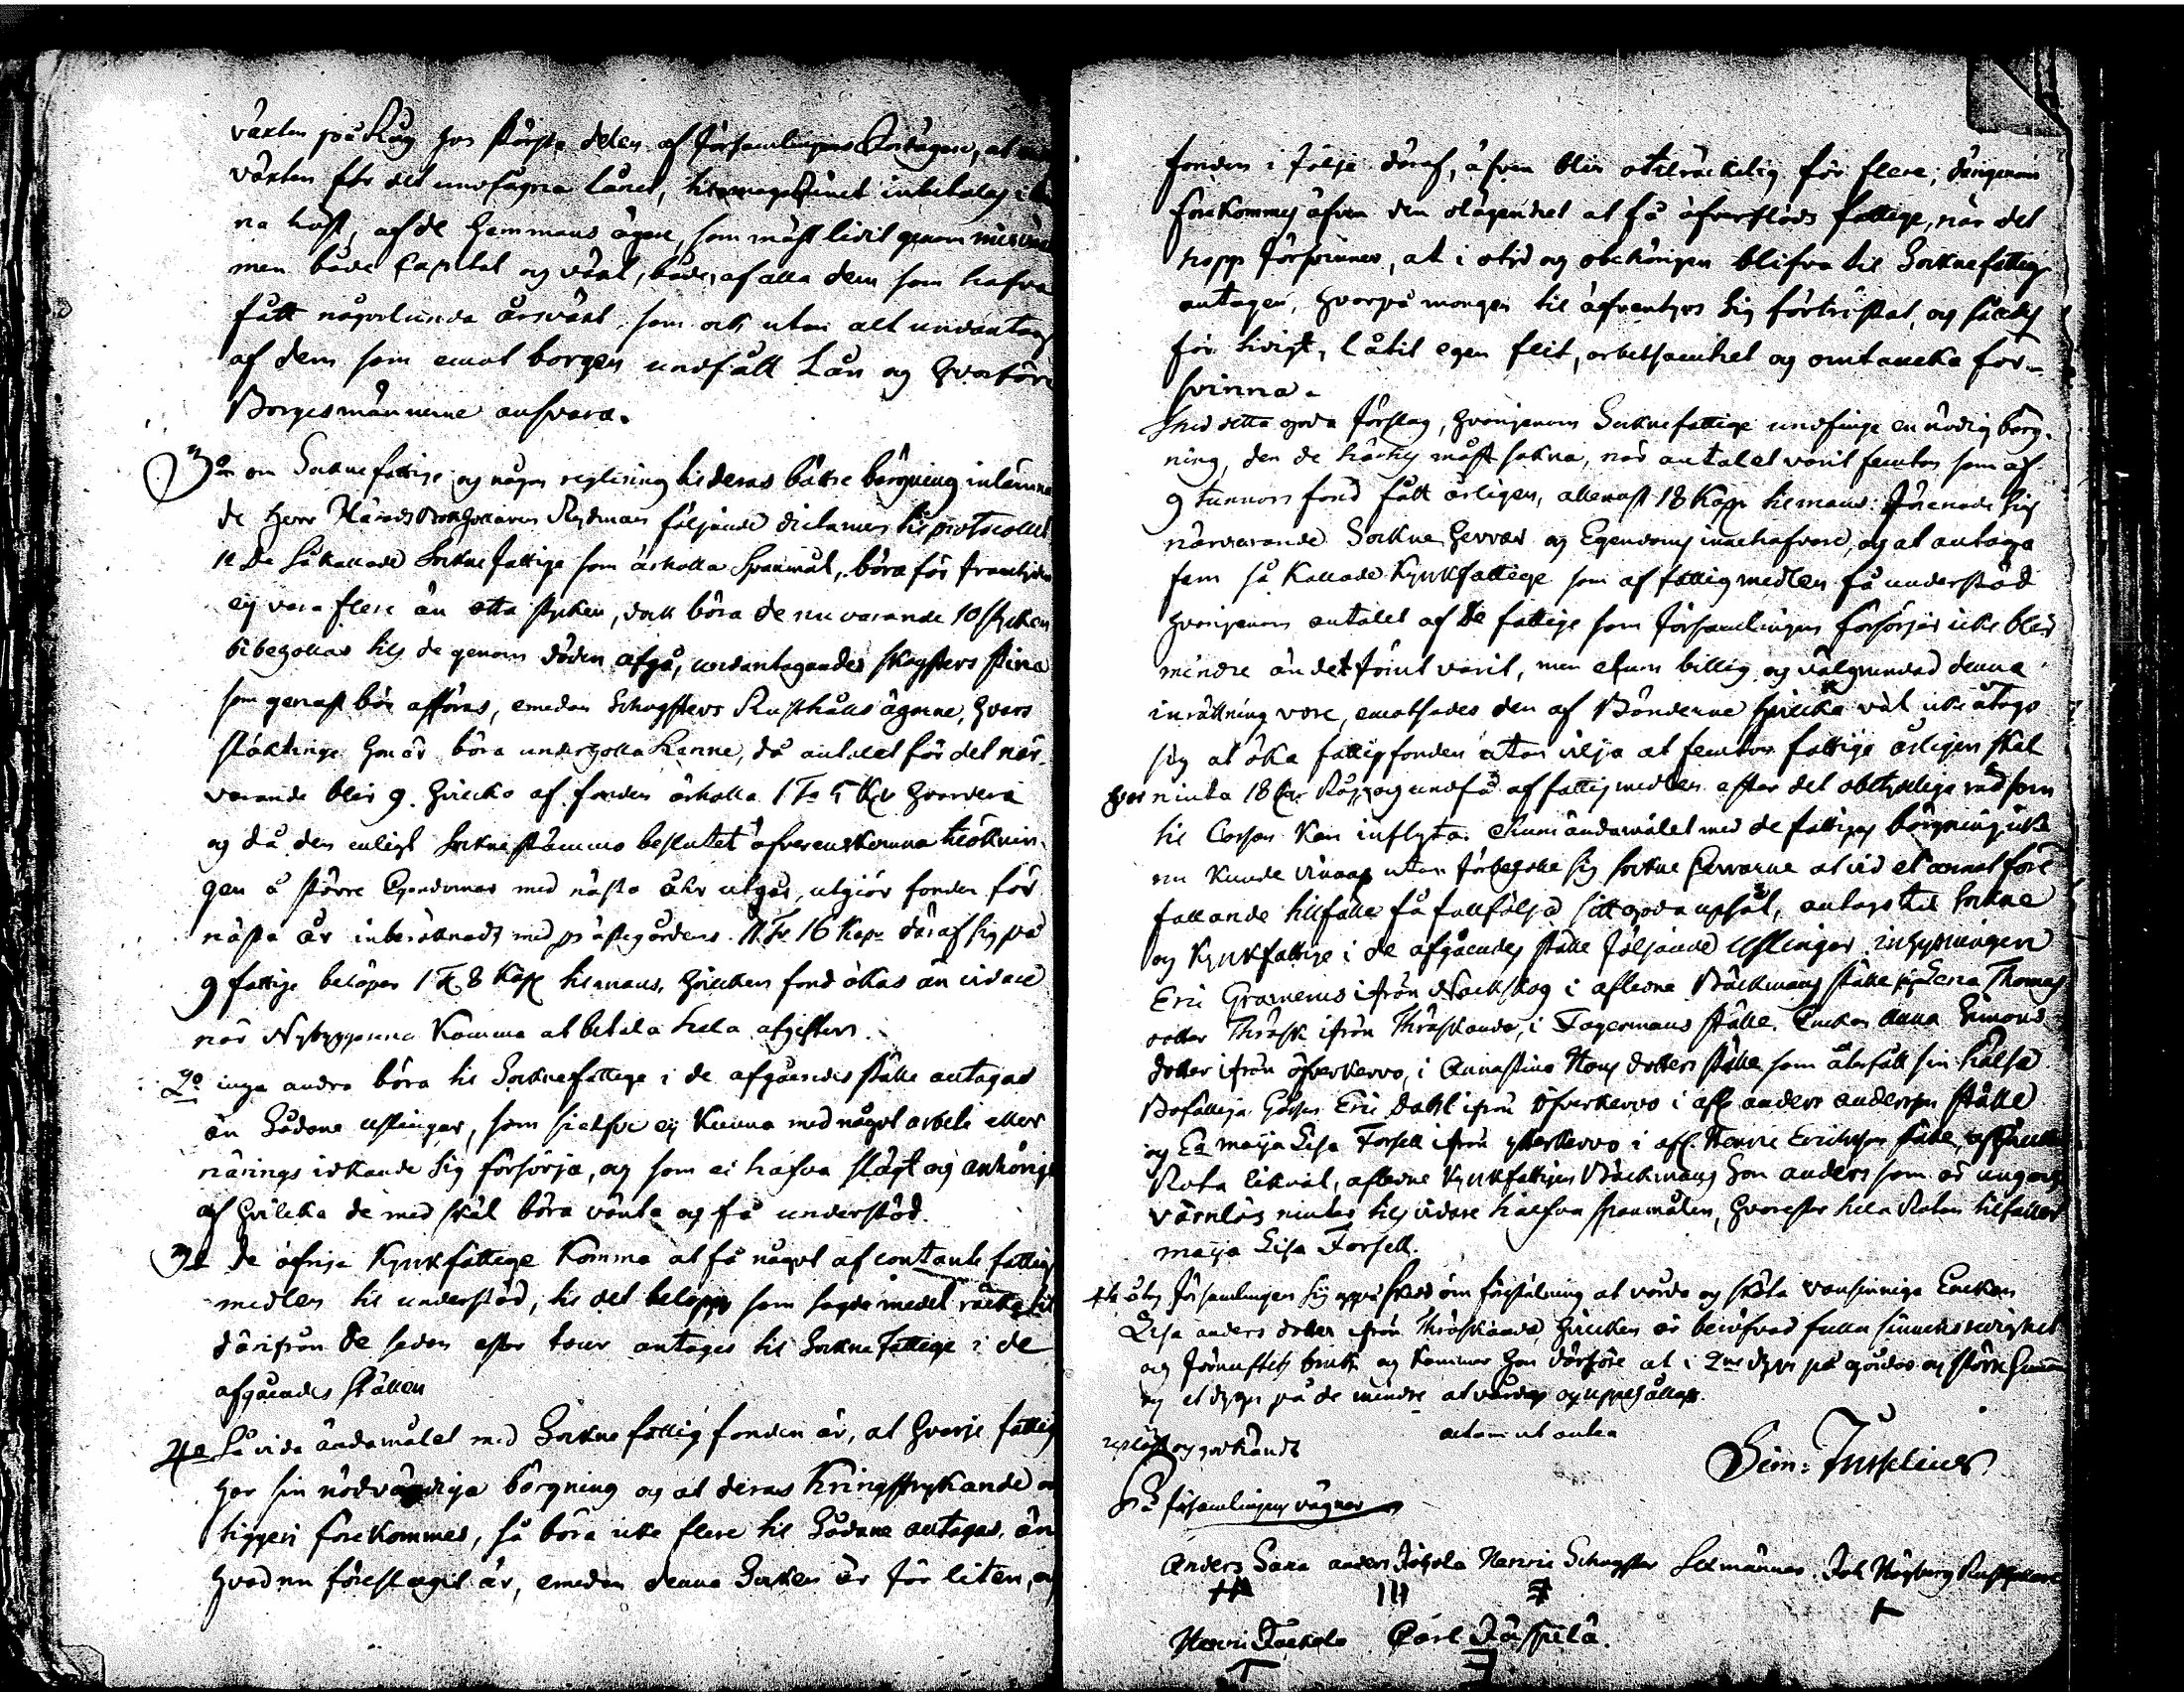 växten på Råg hos största delen af Församlingens Jordägare, at
växten för det undfågna lånet, til magasinet inbetalas i
na höst, af de Hemmans ägare, som mäst lidit genom misväxt
men både Capital og växt, både af alla dem som hafva
fått någorlunda årsväxt, som ock utan alt undantag
af dem som emot borgen undfått Lån og hvarföre
Borgesmännerne ansvara.
3o om Soknefattige og någon reglering til deras bättre bärgning inlämna
de Herr Härads Bokhollaren Rydman följande dictamen til protocollet
1o De så kallade Sokne Fattige som ärholla Spanmål, böra för framtiden
ej vara flere än otta stycken, dock böra de nu varande 10 stycken
bibehollas tils de genom döden afgå, undantagandes Skogsters Stina
som genast bör afföras, emedan Schogsters Rusthålls ägarne, hvars
släktinge hon är böra underholla henne, då antalet för det när-
varande blir 9. hvilcka af fonden ärholla 1 Tn 5 Kpr hvardera
og då den enligt Soknestämmo beslutet öfverenskomna tilöknin-
gen å större Egendomar med nästa åhr utgår, utgiör fonden för
nästa år inberäknadt med prästegårdens 11 Tr 16 Kapr däraf sig på
9 fattige belöper 1 T. 8 Kap til mans, hvilcken fond ökas än vidare
när Nybyggarena komma at betala hela afgiften.
2o inga andra böra til Soknefattige i de afgåendes ställe antagas
än Sådane uslingar, som sielfve ej kunna med något arbete eller
närings idkande sig försörja, og som ei hafva slägt og anhörige
af hvilcka de med skäl böra vänta og få understöd.
3o de öfrige Kyrkfattige komma at få något af contante fattig
medlen til understöd, til det belopp som sagde medel räcka til
därifrån de sedan efter tour antages til Sokne Fattige i de
afgåendes ställen
4o Så vida ändamålet med Sokne fattig fonden är, at hvarje fattig
har sin nödvändiga bärgning og at deras Kringstrykande
tiggeri förekommes, så böra icke flere til Sådane antagas, än
hvad nu föreslagit är, emedan denna Socken är för liten, og
fonden i följe däraf, äfven blir otilräckelig för flere, därigenom
förekommes äfven den olägenhet at få öfverflöds fattige, när det
hopp försvinner, at i otid og obehörigen blifva til Soknefattig
antagen, hvarpå mongen til äfventyrs sig förtröstat, og således
för tidigt, låtit egen flit, arbetsamhet og omtancka för-
svinna.
med detta goda förslag, hvarigenom Soknefattige undfinge en nödig bärg-
ning, den de härtils måst sakna, när antalet varit femton som af
9 tunnors fond fått årligen, allenast 18 Kapp til mans: Förenade sig
närvarande Sokne Herrar og Egendoms innehafvare, og at antaga
fem så Kallade Kyrkfattige som af fattigmedlen få understöd
hvarigenom antalet af de fattige som Församlingen försörjer icke blir
mindre än det förut varit, men ehuru billig og välgrundad denna
inrättning vore, emotsades den af Bönderne hvilcka väl icke åtogo
sig at öka fattigfonden utan vilja at femton fattige årligen skal
niuta 18 Kapp og undfå af fattigmedlen efter det obetydelige råd som
til Cassan kan inflyta. Ehuru ändamålet med de fattiges bärgning icke
nu kunde vinnas utan förbeholla sig Sokne Herrarne at vid et annat före
fallande tilfälle få fullfölja sitt goda upsåt, antogs til Sokne
og Kyrkfattige i de afgåendes ställe följande Uslingar inhysningen
Eric Gramenius ifrån Nackskog i aflidne Bäckmans ställe Lena Thomas
dotter Thräsk ifrån Thräskända, i Fagermans ställe. Enckan Anna Simons
dotter ifrån öfverkervo, i Annastina Hans dotters ställe som återfått sin hälsa
Bofällige Gossen Eric Dahl ifrån öfverkervo i afl. anders andersson ställe
og Ea maja Lisa Forsell ifrån ytterkervo i afl. Henric Ericksson ställe,
Rota likväl, aflidne Kyrkfattigen Bäckmans Son anders som är ung og
värnlös niuter tils vidare halfva spanmålen, hvarefter hela Rotan tilfaller
maja Lisa Forsell.
4o åtog Församlingen sig uppå Föreställning at vårda og sköta vansinniga Enckan
Lisa anders dotter ifrån Thräskända, hvilcken är beröfvad fulla sinnens redighet
og förnuftets bruk og kommer hon därföre at i 2ne dygn på gårdar og större Hemman
og et dygn på de mindre at vårdas og uppehållas.
actum ut antea
uplåst og godkändt
På församlingens vägnar
Anders Sana anders Johola Henric Schogster Sexmännes. Joh Högberg Rusthållare
Henric Jackola Carl Jäspilä.